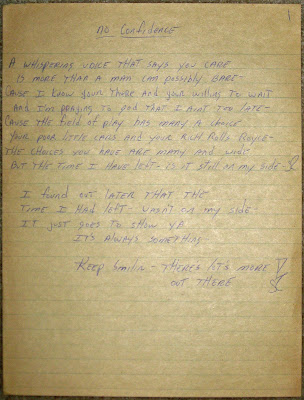 1
No Confidence
A whispering voice that says you care
Is more than a man can possibly bare-
Cause I know your there and your willing to wait
And I'm praying to god that I aint too late-
Cause the field of play has many a choice-
Your poor little cars and your Rich Rolls Royce-
The choices you have are many and wide-
But the time I have left- is it still on my side-
I found out later that the
time I had left- wasn't on my side
It just goes to show ya
It's always something
Keep Smilin- theres lots more
out there